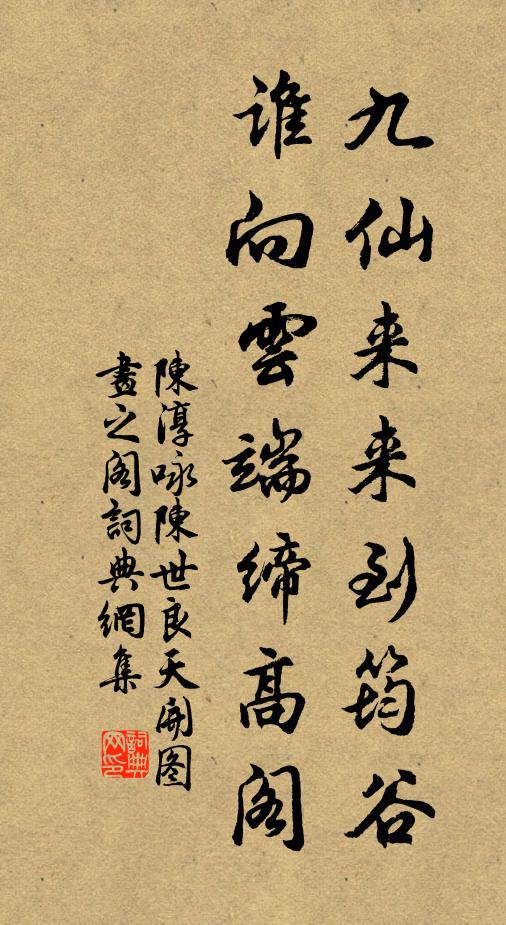 九仙来来到筠谷
谁向雲端締高阁
陳淳咏陳世良天開图
畫之阁詞典網集
詞典
网印